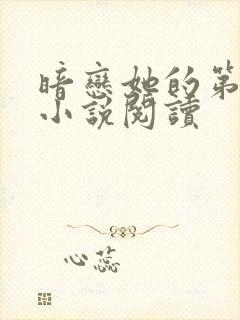 暗戀她的第
小說閱讀
心蕊